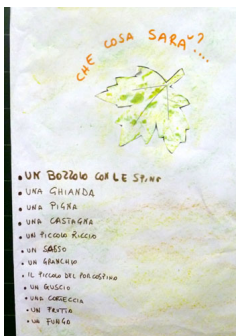 CHE COSA SARA'?....
• UN BOZZOLO CON LE SPINE
• UNA GHIANDA
• UNA PIGNA
• UNA CASTAGNA
• UN PICCOLO RICCIO
• UN SASSO
• UN GRANCHIO
• IL PICCOLO DEL PORCOSPINO
• UN GUSCIO
• UNA CORTECCIA
• UN FRUTTO
• UN FUNGO